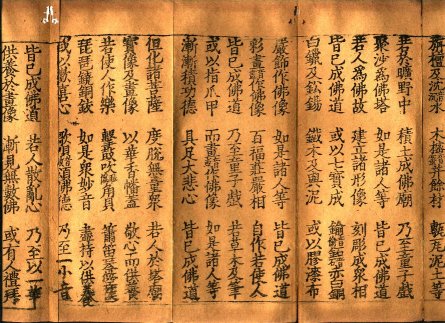 栴檀及沈水 木樒并餘材 甎瓦泥土等
若於曠野中 積土成佛廟 乃至童子戲
聚沙為佛塔 如是諸人等 皆已成佛道
若人為佛故 建立諸形像 刻彫成眾相
皆已成佛道 或以七寶成 鍮鉐赤白銅
白鑞及鉛錫 鐵木及與泥 或以膠漆布
嚴飾作佛像 如是諸人等 皆已成佛道
彩畫作佛像 百福莊嚴相 自作若使人
皆已成佛道 乃至童子戲 若草木及筆
或以指爪甲 而畫作佛像 如是諸人等
漸漸積功德 具足大悲心 皆已成佛道
但化諸菩薩 度脫無量眾 若人於塔廟
寶像及畫像 以華香幡蓋 敬心而供養
若使人作樂 擊鼓吹角貝 簫笛琴箜篌
琵琶鐃銅鈸 如是眾妙音 盡持以供養
或以歡喜心 歌唄頌佛德 乃至一小音
皆已成佛道 若人散亂心 乃至以一華
供養於畫像 漸見無數佛 或有人禮拜